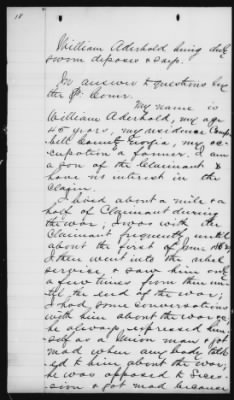 18
William Aderhold being duly
sworn deposes & says.
In answer to questions by
the Sp. Comr.
My name is
William Aderhold, my age
45 years, my residence Camp-
bell County Georgia, my oc-
cupation a farmer. I am
a son of the Claimant &
have no interest in the
claim.
I lived about a mile & a
half of Claimant during
the war, I was with the
Claimant frequently until
about the first of June
I then went into the rebel
service, & saw him only
a few times from then un-
til the end of the war;
I had some conversations
with him about the war &
he always expressed him-
self as a Union man & got
mad when any body talk-
ed to him about the war;
he was opposed to seces-
sion & got mad because